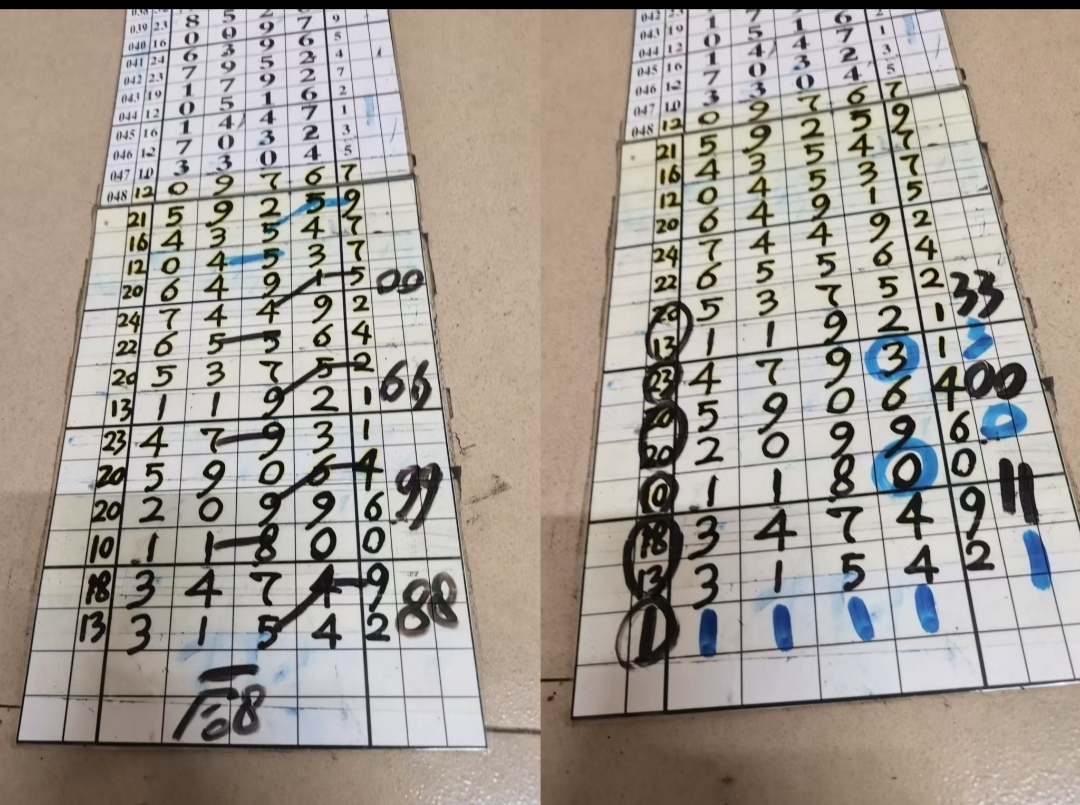 039 23 8 5 2 9
040 16 0 0 9 7 5
041 24 6 3 9 6 4
042 23 7 9 5 2 7
043 19 1 7 9 2 2
044 12 0 5 1 6 1
045 16 1 4 4 7 3
046 12 7 0 3 2 5
047 10 3 3 0 4
048 12 0 9 7 6 7
21 5 9 2 5 9
16 4 3 5 4 7
12 0 4 5 3 7
20 6 4 9 1 5 00
24 7 4 4 9 2
22 6 5 5 6 4
20 5 3 7 5 2 66
13 1 1 9 2 1
23 4 7 9 3 1
20 5 9 0 6 4 99
20 2 0 9 9 6
10 1 1 8 0 0
18 3 4 7 4 9 88
13 3 1 5 4 2
8
042
043 19 1 7 6
044 12 0 5 1 7 1
045 16 1 4 4 2 3
046 12 7 0 3 4 5
047 10 3 3 0
048 12 0 9 7 6 7
21 5 9 2 5 9
16 4 3 5 4 7
12 0 4 5 3 7
20 6 4 9 1 5
24 7 4 4 9 2
22 6 5 5 6 4
20 5 3 7 5 2 33
13 1 1 9 2 1
23 4 7 9 3 1 3
20 5 9 0 6 4 00
20 2 0 9 9 6 0
10 1 1 8 0 0
18 3 4 7 4 9 11
13 3 1 5 4 2 1
1 1 1 1 1